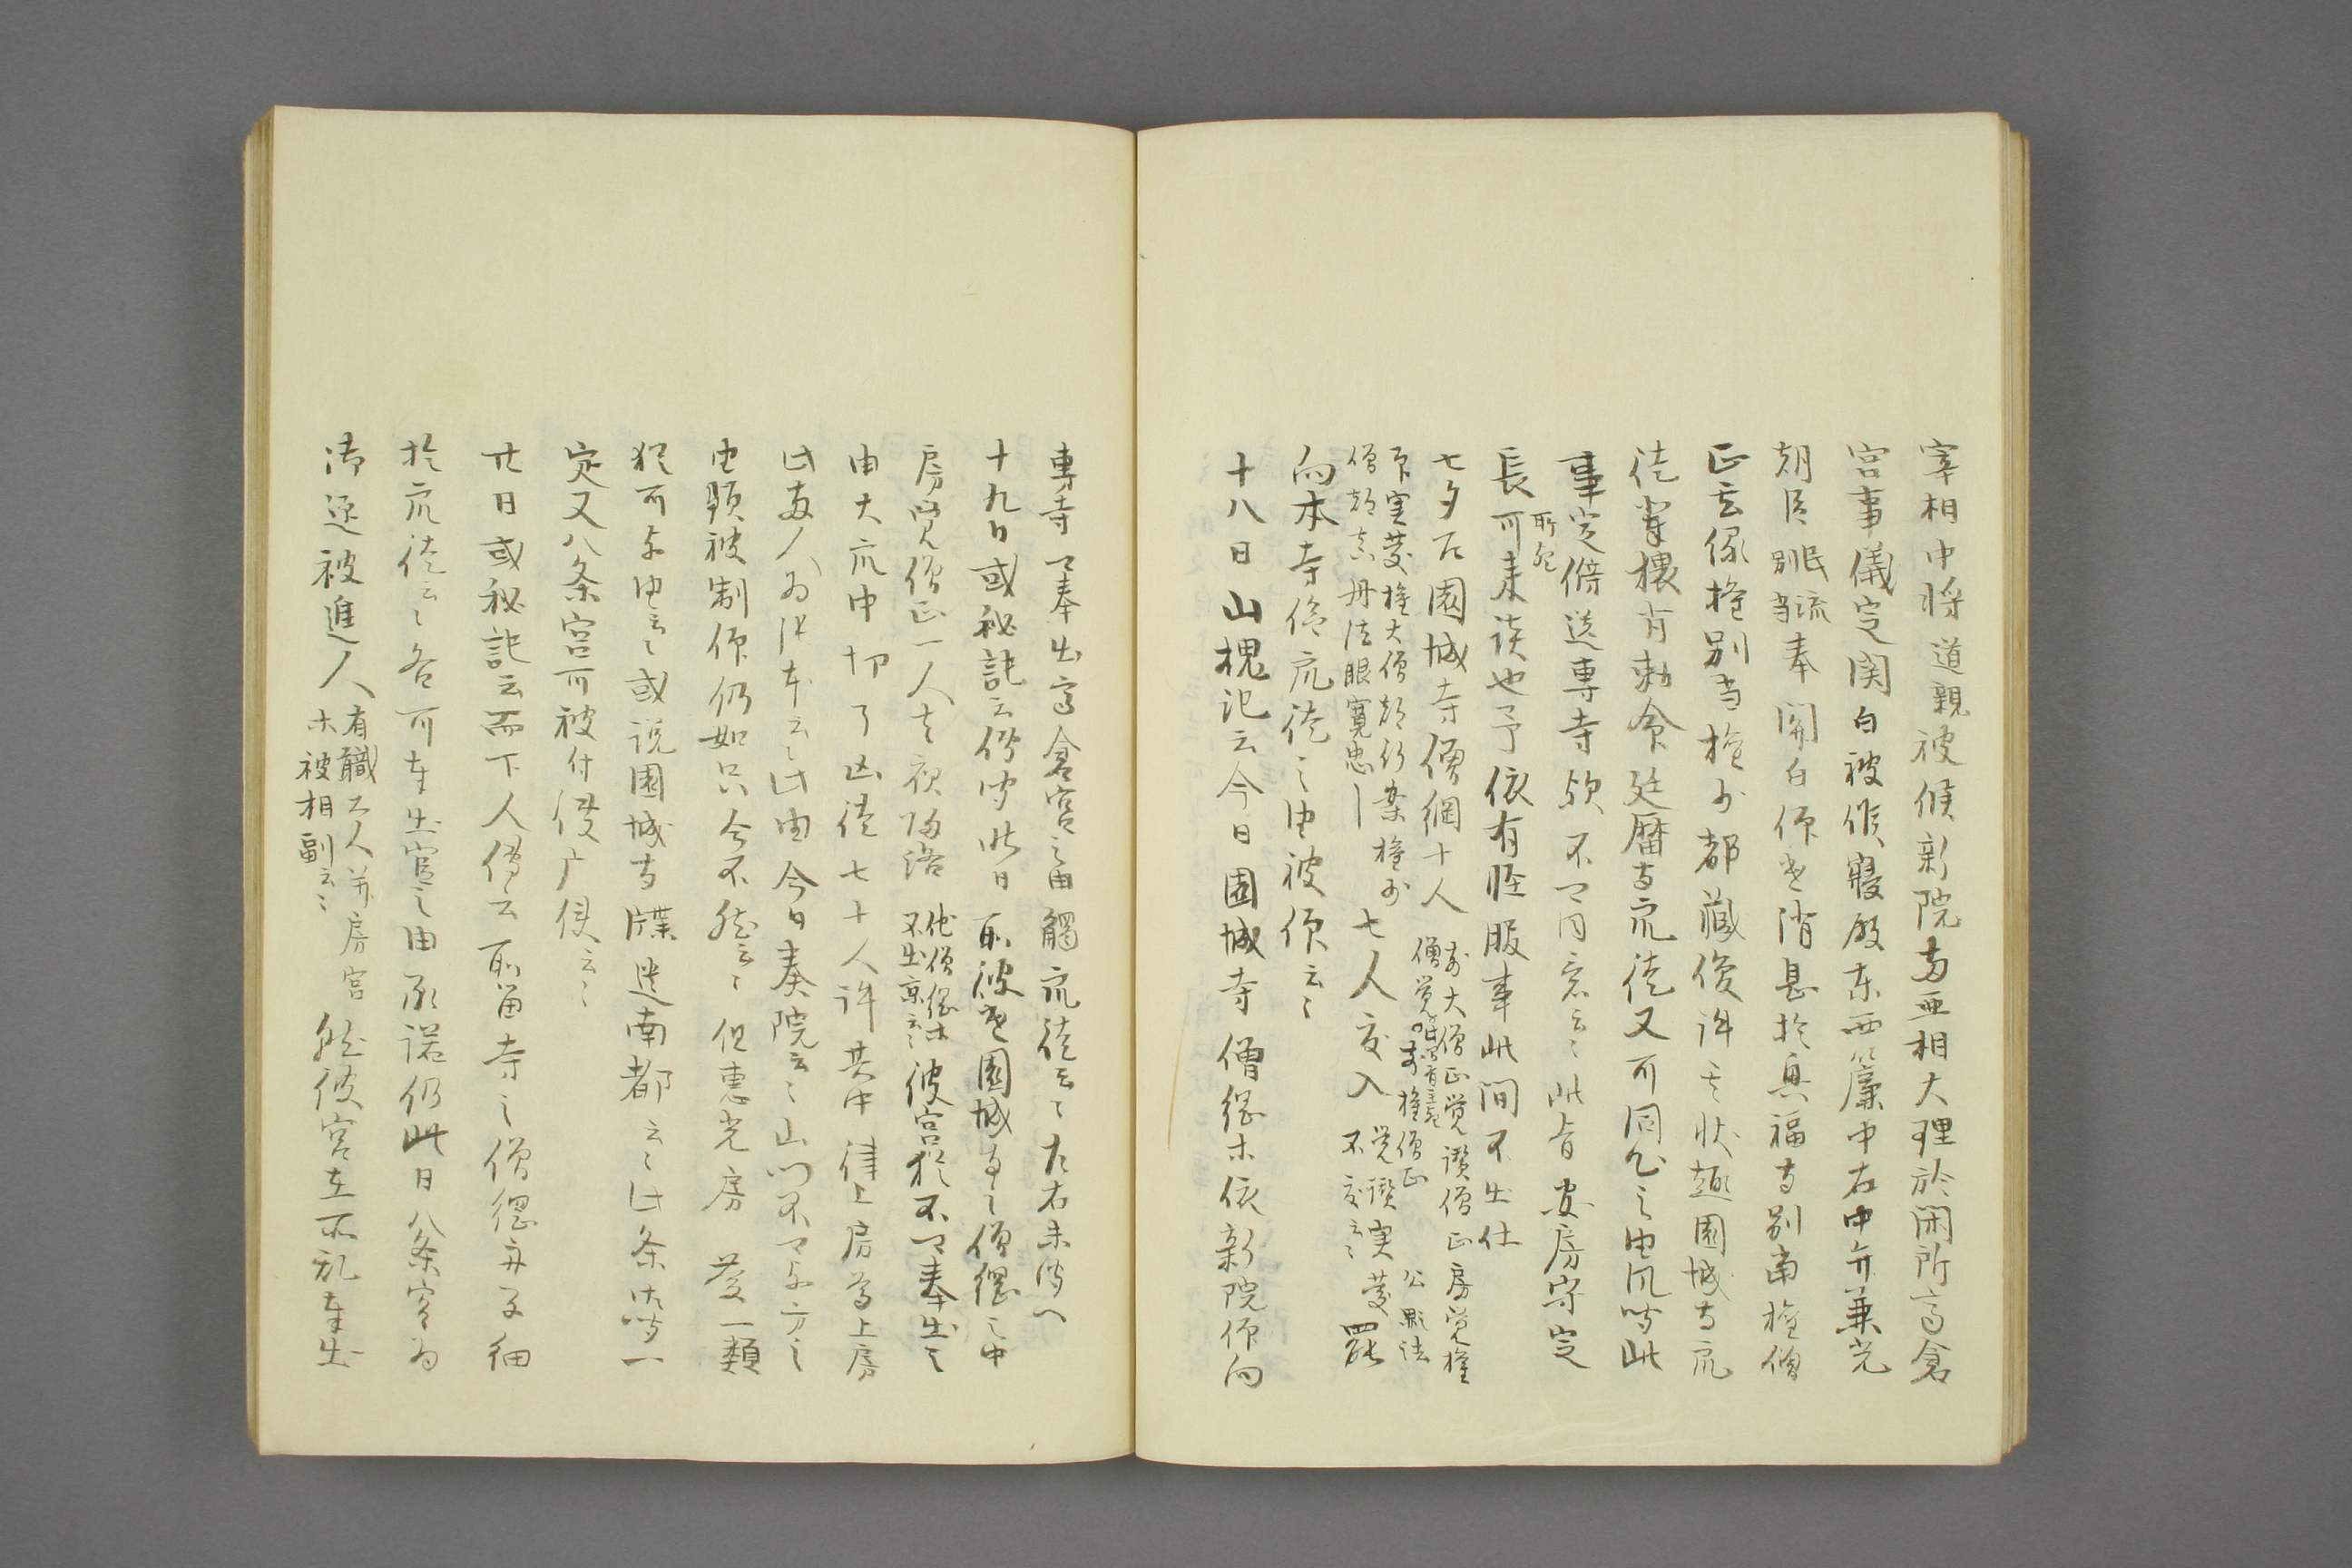 宰相中将道親被候新院両亜相大理於閑所高倉
宮事儀定関白被候寝殿東西簾中右中弁兼光
朝臣 民流別当 奉関白仰遣消息於興福寺別当権僧
正玄縁権別当権少都蔵俊許其状趣園城寺衆
徒掌 背勅命延暦寺衆徒又可同心之由風聞此
事定 送専寺歟不可同意云々此旨安房守定
長 所宛 可来談也予依有軽服事此間不出仕
七夕 園城寺僧綱十人 前大僧正覚讃僧正房覚権
僧 前権僧正 公顕法
印実慶権大僧都行乗権少
僧都真円法眼寛忠 七人度入 覚讃実慶罷
不度云々
向本寺 衆徒之由被仰云々
十八日山槐記云今日園城寺僧綱等依新院仰向
専寺可奉出高倉宮之由触衆徒云々左右未聞へ
十九日或秘記云伝聞昨日所被遣園城寺之僧綱之中
房覚僧正一人去夜帰洛 他僧綱等不出京云々 彼宮於不可奉出之
由大衆申切了凶徒七十人許其中律上房尊上房
此両人為張本云々此由今日奏院云々山門不可与力之
由頻被制仰仍如只今不然云々但恵光房 一類
猶可与由云々或説園城寺牒送南都云々此条 一
定又八条宮可被付使庁使云々
廿日或秘記云 下人伝云所留寺之僧綱 子細
於衆徒云々各可奉出宮之由承諾仍此日八条宮為
御迎被進人 有職 人并房官等被相副云々 然彼宮在所 奉出